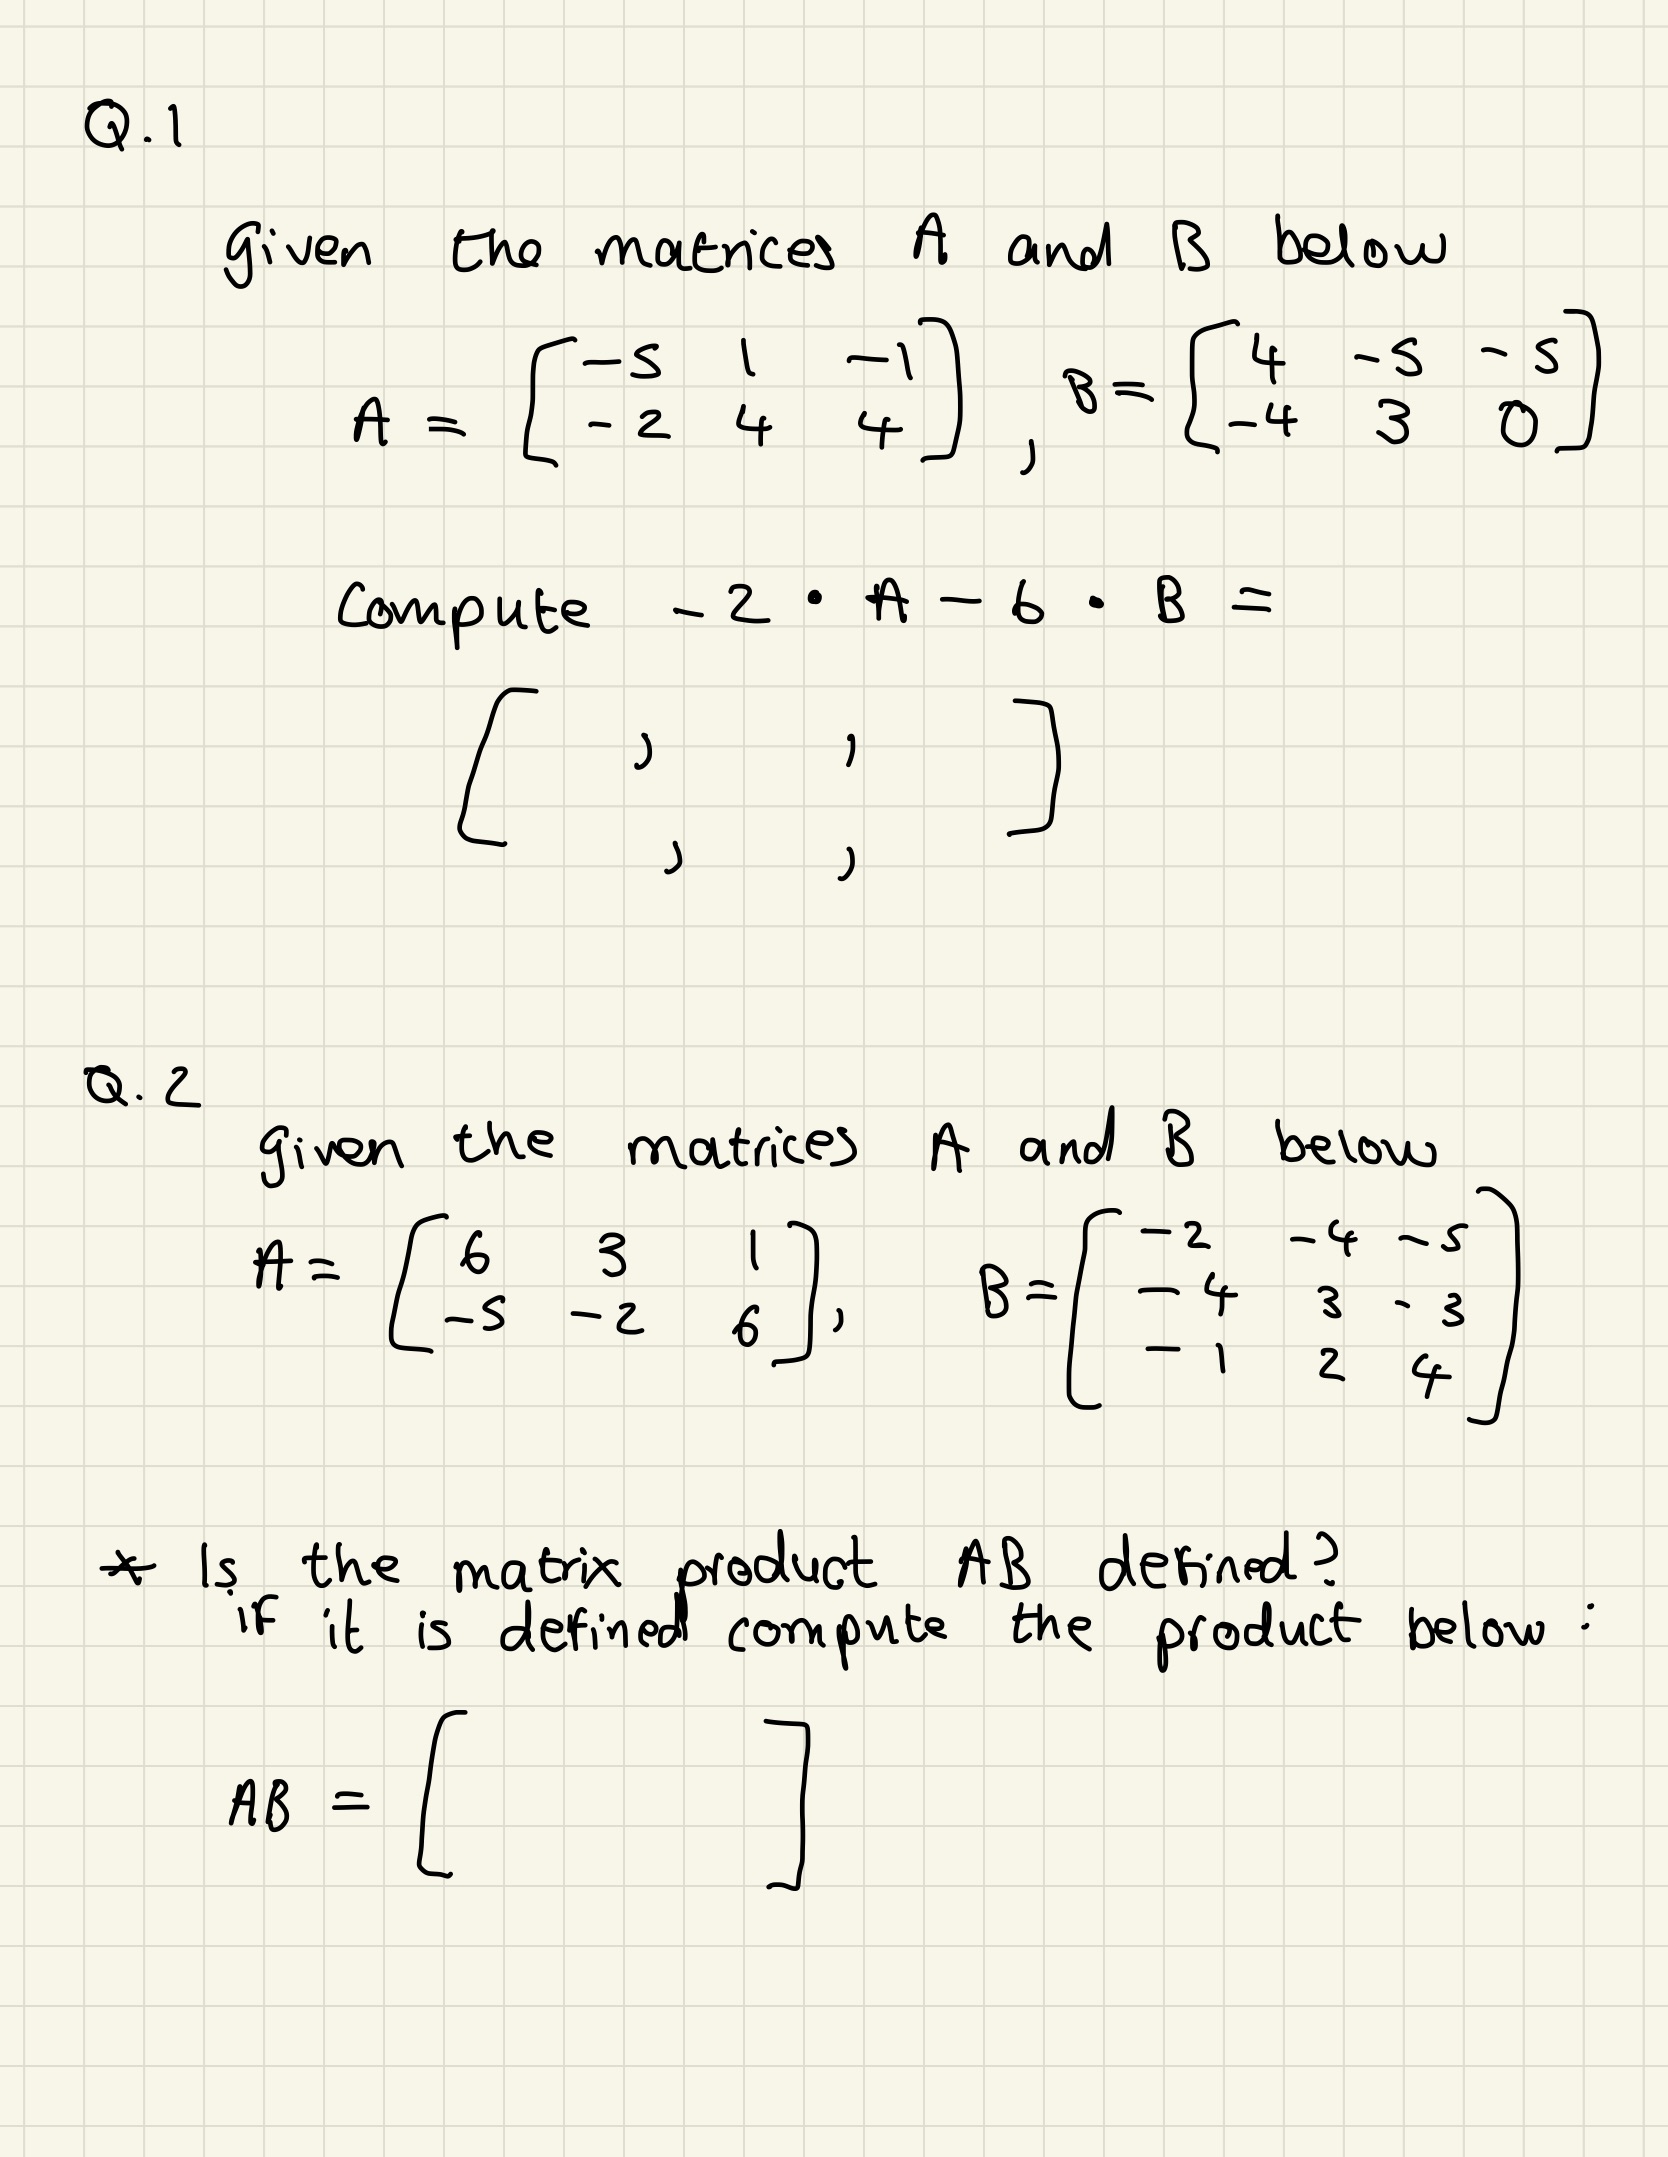 Q.1
given the matrices A and B below
A = [ -5 1 -1
-2 4 4 ] , B = [ 4 -5 -5
-4 3 0 ]
Compute -2 • A - 6 • B =
[ , , ]
, ,
Q.2
given the matrices A and B below
A = [ 6 3 1
-5 -2 6 ] , B = [ -2 -4 -5
-4 3 -3
-1 2 4 ]
* Is the matrix product AB defined?
if it is defined compute the product below :
AB = [ ]